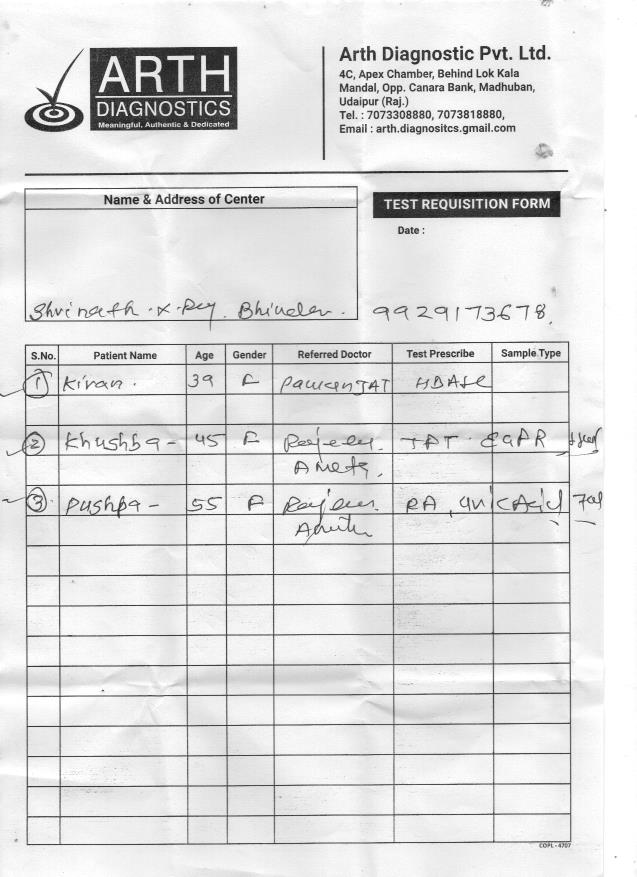 ARTH
DIAGNOSTICS
Meaningful, Authentic & Dedicated
Arth Diagnostic Pvt. Ltd.
4C, Apex Chamber, Behind Lok Kala
Mandal, Opp. Canara Bank, Madhuban,
Udaipur (Raj.)
Tel. : 7073308880, 7073818880,
Email : arth.diagnositcs.gmail.com
Name & Address of Center
TEST REQUISITION FORM
Date :
Shrinath X-Ray. Bhinder. 9929173678
S.No. Patient Name Age Gender Referred Doctor Test Prescribe Sample Type
1 Kiran. 39 F HBA1c
2 Khushba - 45 F
3 Pushpa - 55 F RA, uric Acid
COPL - 4707